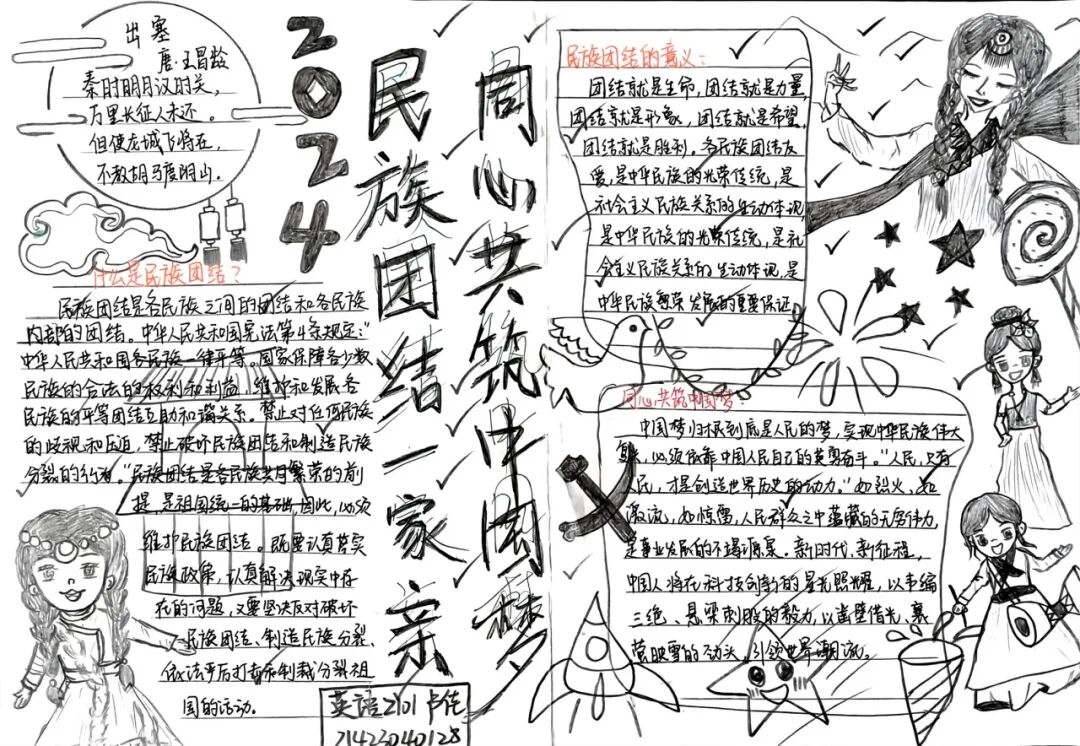 出塞
唐·王昌龄
秦时明月汉时关，
万里长征人未还。
但使龙城飞将在，
不教胡马度阴山。
2024
民族团结一家亲
同心共筑中国梦
什么是民族团结？
民族团结是各民族之间的团结和各民族
内部的团结。中华人民共和国宪法第4条规定："
中华人民共和国各民族一律平等。国家保障各少数
民族的合法的权利和利益，维护和发展各
民族的平等团结互助和谐关系。禁止对任何民族
的歧视和压迫，禁止破坏民族团结和制造民族
分裂的行为。"民族团结是各民族共同繁荣的前
提，是祖国统一的基础，因此，必须
维护民族团结。既要认真落实
民族政策，认真解决现实中存
在的问题，又要坚决反对破坏
民族团结、制造民族分裂、
依法严厉打击和制裁分裂祖
国的活动。
英语2101 卢佳
21423040128
民族团结的意义：
团结就是生命，团结就是力量，
团结就是形象，团结就是希望，
团结就是胜利。各民族团结友
爱，是中华民族的光荣传统，是
社会主义民族关系的生动体现，
是中华民族的光荣传统，是社
会主义民族关系的生动体现，是
中华民族繁荣发展的重要保证
同心共筑中国梦
中国梦归根到底是人民的梦，实现中华民族伟大
复兴，必须依靠中国人民自己的英勇奋斗。"人民，只有
人民，才是创造世界历史的动力。"如烈火，如
激流，如惊雷，人民群众之中蕴藏的无穷伟力，
是事业发展的不竭源泉。新时代，新征程，
中国人将在科技创新的星光照耀，以韦编
三绝、悬梁刺股的毅力，以凿壁借光、囊
萤映雪的劲头，引领世界潮流。